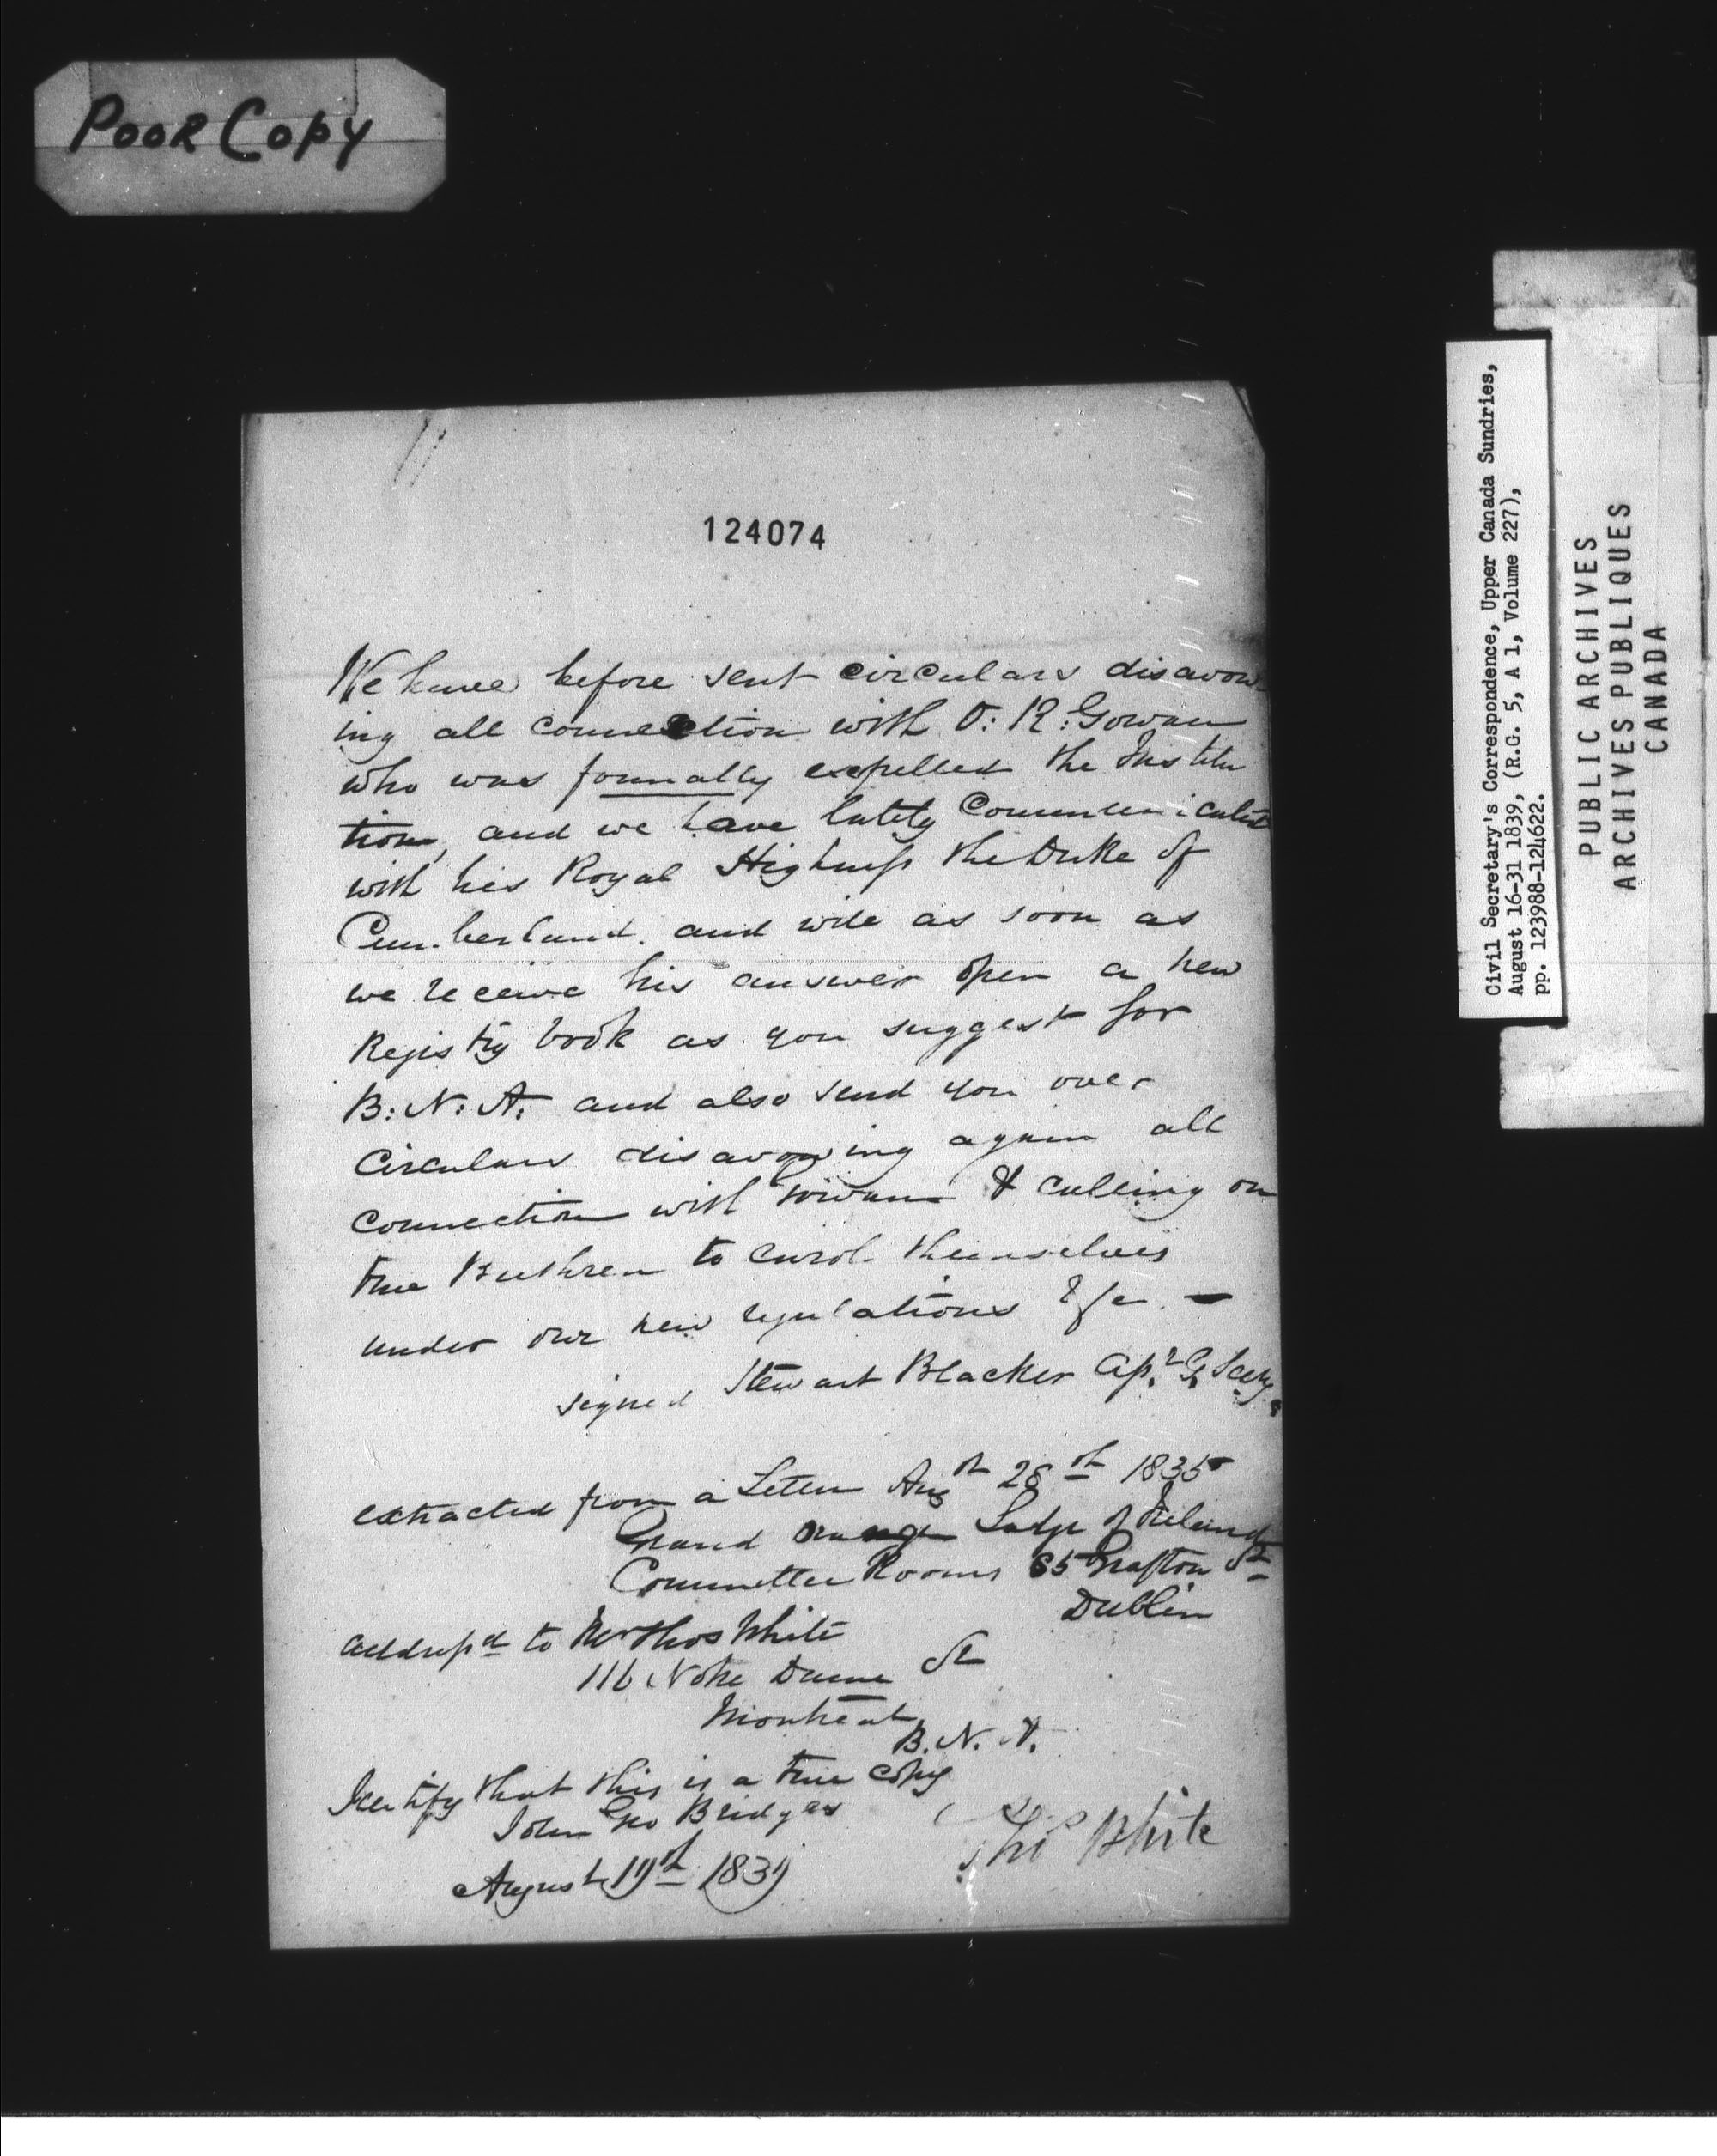 Poor Copy
124074
We have before sent circulars disavow-
ing all connection with O: R: Gowan
who was formally expelled the Institu
tion, and we have lately Communicated
with his Royal Highness the Duke of
Cumberland. and will as soon as
we receive his answer open a new
Registry book as you suggest for
B: N: A: and also send you over
Circulars disavowing again all
connection with Gowan & calling on
true Brethren to enrol themselves
under our new regulations &c. —
signed Stewart Blacker G. Secty.
extracted from a Letter 28th 1835
Grand Orange Lodge of Ireland
Committee Rooms 85 Grafton St
Dublin
addressd to Mr Thos White
116 Notre Dame St
Montreal
B. N. A.
I certify that this is a true copy
John Geo Bridges
Thos White
August 19th 1839
Civil Secretary's Correspondence, Upper Canada Sundries,
August 16-31 1839, (R.G. 5, A 1, Volume 227),
pp. 123988-124622.
PUBLIC ARCHIVES
ARCHIVES PUBLIQUES
CANADA